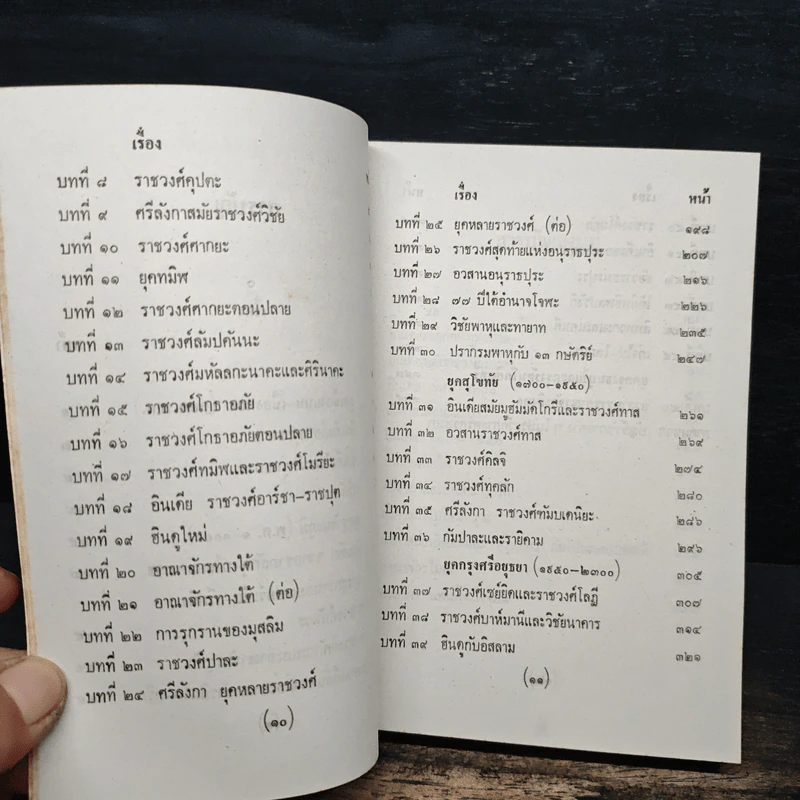 เรื่อง
บทที่ ๘ ราชวงศ์คุปตะ
บทที่ ๙ ศรีลังกาสมัยราชวงศ์วิชัย
บทที่ ๑๐ ราชวงศ์ศากยะ
บทที่ ๑๑ ยุคทมิฬ
บทที่ ๑๒ ราชวงศ์ศากยะตอนปลาย
บทที่ ๑๓ ราชวงศ์ลัมปคันนะ
บทที่ ๑๔ ราชวงศ์มหัลลกะนาคะและศิรินาคะ
บทที่ ๑๕ ราชวงศ์โกธาอภัย
บทที่ ๑๖ ราชวงศ์โกธาอภัยตอนปลาย
บทที่ ๑๗ ราชวงศ์ทมิฬและราชวงศ์โมริยะ
บทที่ ๑๘ อินเดีย ราชวงศ์อาร์ชา–ราชปุต
บทที่ ๑๙ ฮินดูใหม่
บทที่ ๒๐ อาณาจักรทางใต้
บทที่ ๒๑ อาณาจักรทางใต้ (ต่อ)
บทที่ ๒๒ การรุกรานของมุสลิม
บทที่ ๒๓ ราชวงศ์ปาละ
บทที่ ๒๔ ศรีลังกา ยุคหลายราชวงศ์
(๑๐)
เรื่อง หน้า
บทที่ ๒๕ ยุคหลายราชวงศ์ (ต่อ) ๑๙๘
บทที่ ๒๖ ราชวงศ์สุดท้ายแห่งอนุราธปุระ ๒๐๗
บทที่ ๒๗ อวสานอนุราธปุระ ๒๑๖
บทที่ ๒๘ ๗๗ ปีใต้อำนาจโจฬะ ๒๒๖
บทที่ ๒๙ วิชัยพาหุและทายาท ๒๓๕
บทที่ ๓๐ ปรากรมพาหุกับ ๑๓ กษัตริย์ ๒๔๗
ยุคสุโขทัย (๑๗๐๐–๑๙๕๐)
บทที่ ๓๑ อินเดียสมัยมูฮัมมัดโกรีและราชวงศ์ทาส ๒๖๑
บทที่ ๓๒ อวสานราชวงศ์ทาส ๒๖๙
บทที่ ๓๓ ราชวงศ์คิลจิ ๒๗๔
บทที่ ๓๔ ราชวงศ์ทุคลัก ๒๘๐
บทที่ ๓๕ ศรีลังกา ราชวงศ์ฑัมบเดนิยะ ๒๘๖
บทที่ ๓๖ กัมปาละและรายิคาม ๒๙๖
ยุคกรุงศรีอยุธยา (๑๙๕๐–๒๓๐๐) ๓๐๕
บทที่ ๓๗ ราชวงศ์เซย์ยิดและราชวงศ์โลฎี ๓๐๗
บทที่ ๓๘ ราชวงศ์บาห์มานีและวิชัยนาคาร ๓๑๔
บทที่ ๓๙ ฮินดูกับอิสลาม ๓๒๑
(๑๑)